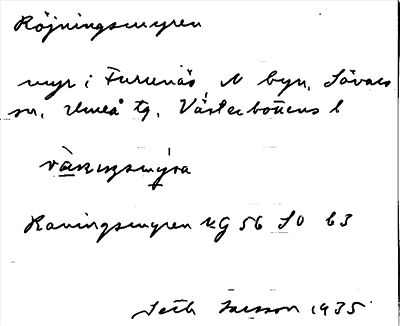 Röjningsmyren
myr i Furunäs, N byn, Sävars
sn, Umeå tg, Västerbottens l
Raningsmyren KG 56 SO b3
Seth Larsson 1935